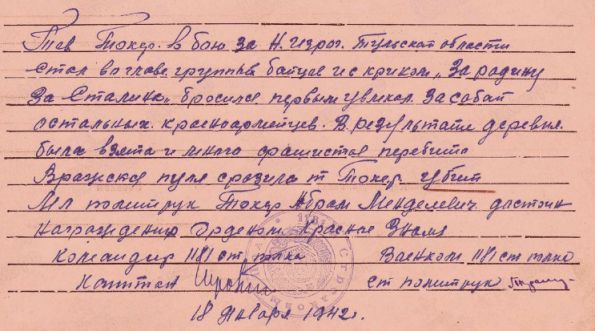 Тов Токер. в бою за Н. Игрог. Тульской области
стал во главе группы байцов и с криком „За родину
За Сталина" бросился первым увлекая за собой
остальных красноармейцев. В результате деревня
была взята и много фашистов перебито
Вражская пуля сразила т Токер убит
Мл политрук Токер Абрам Менделевич достоин
награждения Орденом Красное Знамя
Командир 1181 ст. полка Военком 1181 ст полка
Капитан ст политрук
18 января 1942 г.